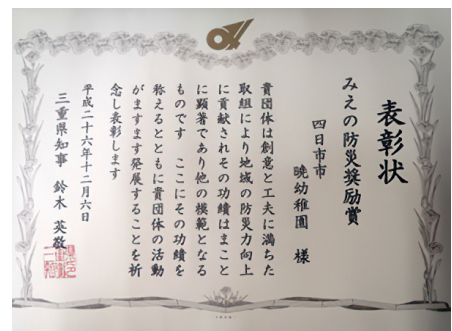 表彰状
みえの防災奨励賞
四日市市
暁幼稚園 様
貴団体は創意と工夫に満ちた
取組により地域の防災力向上
に貢献されその功績はまこと
に顕著であり他の模範となる
ものです ここにその功績を
称えるとともに貴団体の活動
がますます発展することを祈
念し表彰します
平成二十六年十二月六日
三重県知事 鈴木 英敬